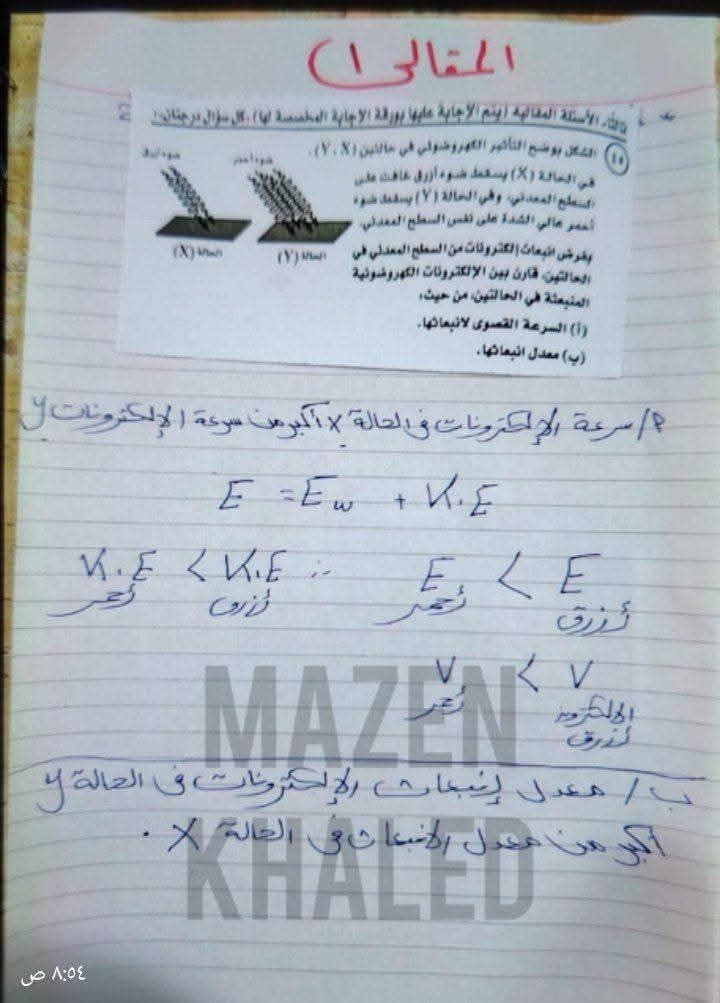 المقالى (1
ثالثًا: الأسئلة المقالية (يتم الإجابة عليها بورقة الإجابة المخصصة لها): كل سؤال درجتان:
٤٥ الشكل يوضح التأثير الكهروضوئي في حالتين (Y ، X).
في الحالة (X) يسقط ضوء أزرق خافت على
السطح المعدني، وفي الحالة (Y) يسقط ضوء
أحمر عالي الشدة على نفس السطح المعدني.
بفرض انبعاث إلكترونات من السطح المعدني في
الحالتين، قارن بين الإلكترونات الكهروضوئية
المنبعثة في الحالتين، من حيث:
(أ) السرعة القصوى لانبعاثها.
(ب) معدل انبعاثها.
ضوء أحمر
ضوء أزرق
الحالة (Y)
الحالة (X)
أ/ سرعة الإلكترونات فى الحالة X أكبر من سرعة الإلكترونات y
E = Ew + K.E
K.E < K.E ∴ E < E
أحمر أزرق أحمر أزرق
V < V
أحمر
أزرق
ب/ معدل إنبعاث الإلكترونات فى الحالة y
أكبر من معدل الانبعاث فى الحالة X .
MAZEN
KHALED
٨:٥٤ ص